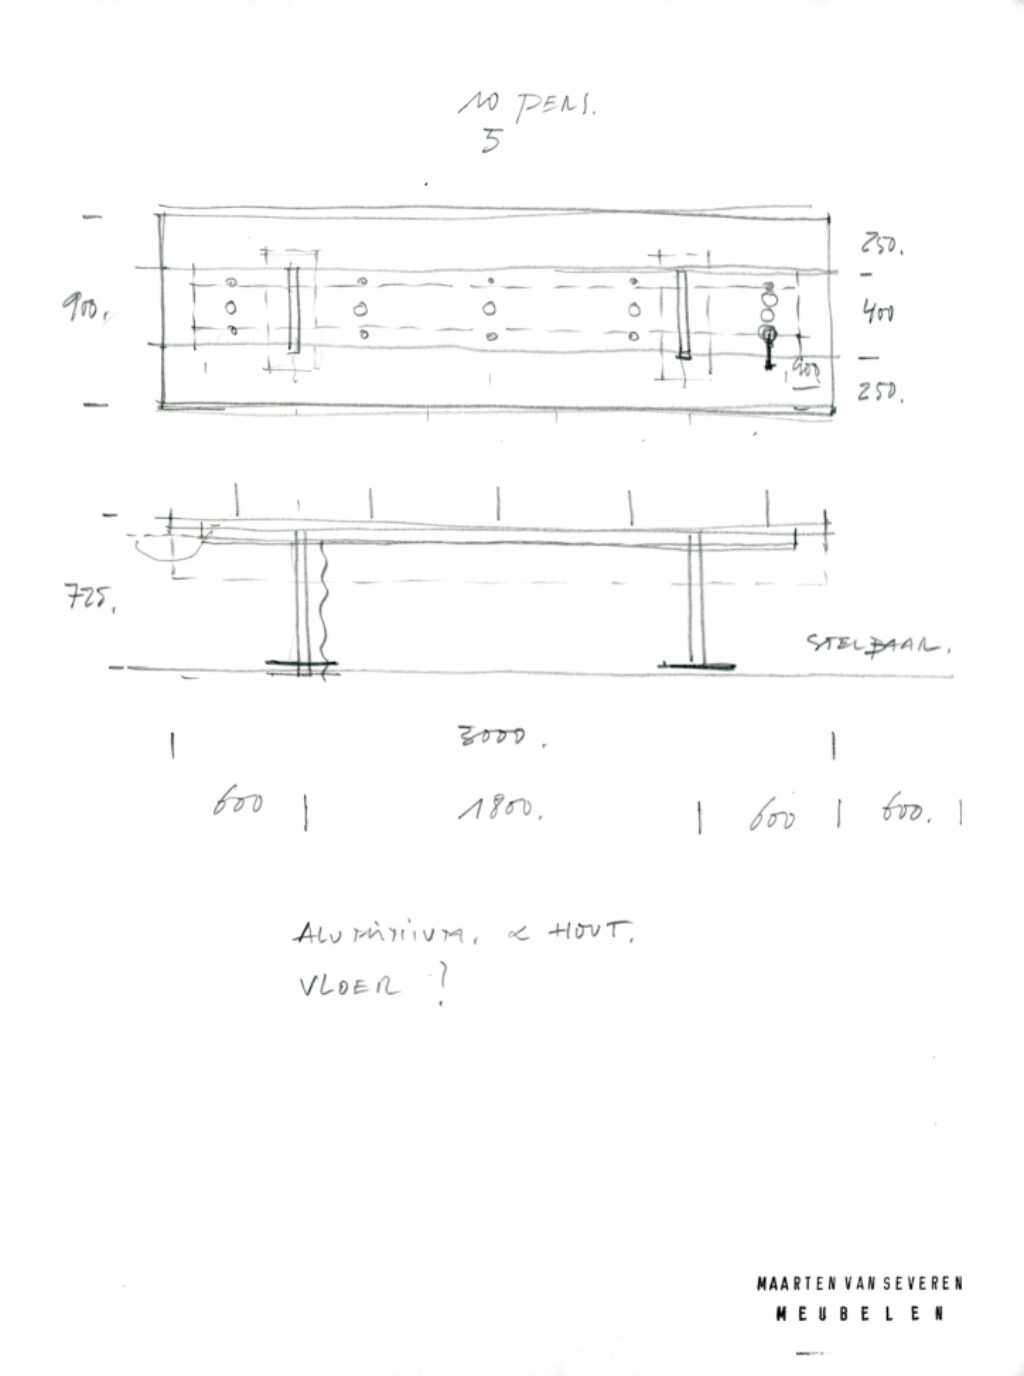 10 PERS.
5
250.
900.
400
900
250.
725.
STELBAAR.
3000.
600 1800. 600 600.
ALUMINIUM. & HOUT.
VLOER ?
MAARTEN VAN SEVEREN
MEUBELEN